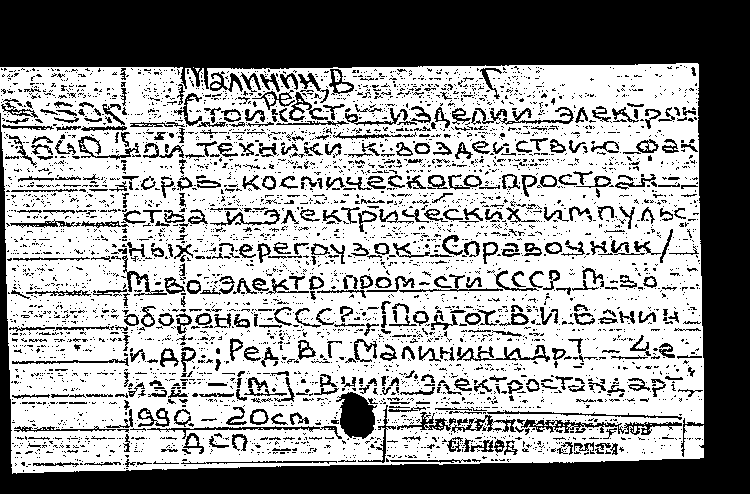 Малинин, В Г
ред.
Стойкость изделий электрон
1640 ной техники к воздействию фак
торов космического простран-
ства и электрических импульс-
ных перегрузок : Справочник /
М-во электр. пром-сти СССР, М-во
обороны СССР ; [Подгот. В.И. Ванин
и др. ; Ред. В.Г. Малинин и др.] – 4-е
изд. – [М.] : ВНИИ "Электростандарт",
1990 – 20 cm
ДСП